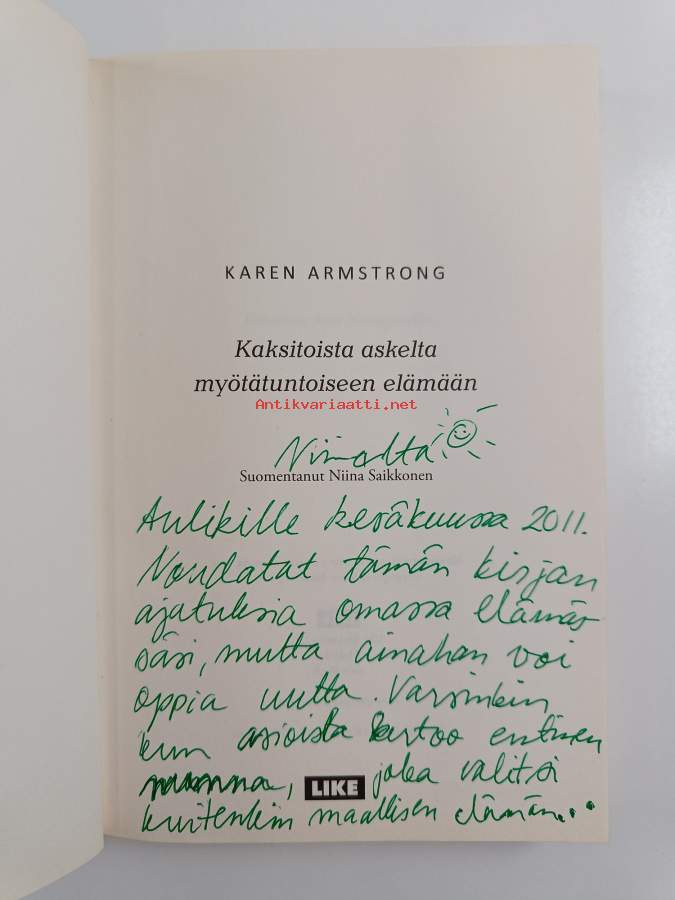 KAREN ARMSTRONG
Kaksitoista askelta
myötätuntoiseen elämään
Antikvariaatti.net
Niinalta
Suomentanut Niina Saikkonen
Aulikille kesäkuussa 2011.
Noudatat tämän kirjan
ajatuksia omassa elämäs-
säsi, mutta ainahan voi
oppia uutta. Varsinkin
kun asioista kertoo entinen
nunna, joka valitsi
LIKE
kuitenkin maallisen elämän...